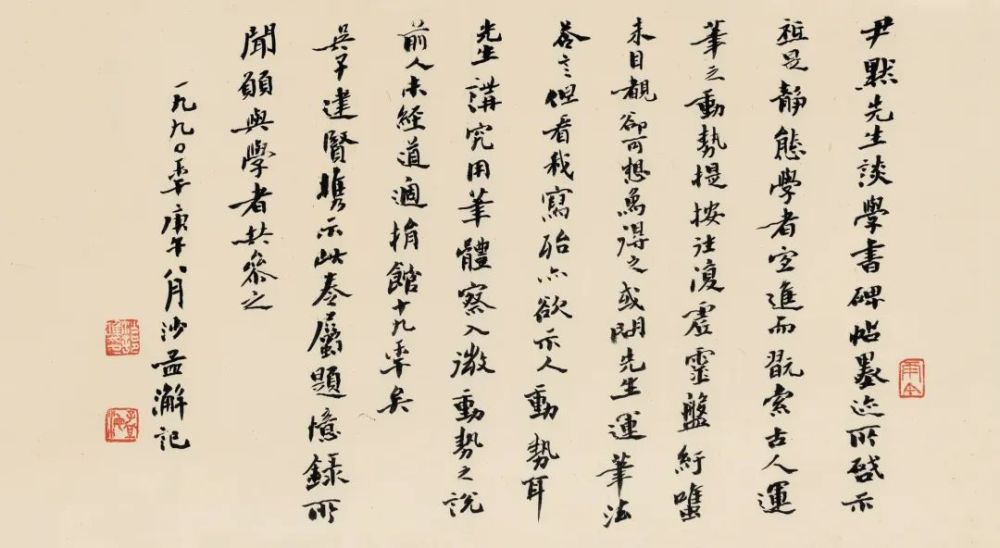 尹默先生談學書碑帖墨迹所啓示
祗是靜態學者宜進而翫索古人運
筆之動勢提按往復虛靈盤紆雖
未目覩卻可想象得之或問先生運筆法
答言但看我寫殆亦欲示人動勢耳
先生講究用筆體察入微動勢之說
前人未經道過捐館十九年矣
吳子建賢攜示此卷屬題憶錄所
聞願與學者共參之
一九九〇年庚午八月沙孟澥記